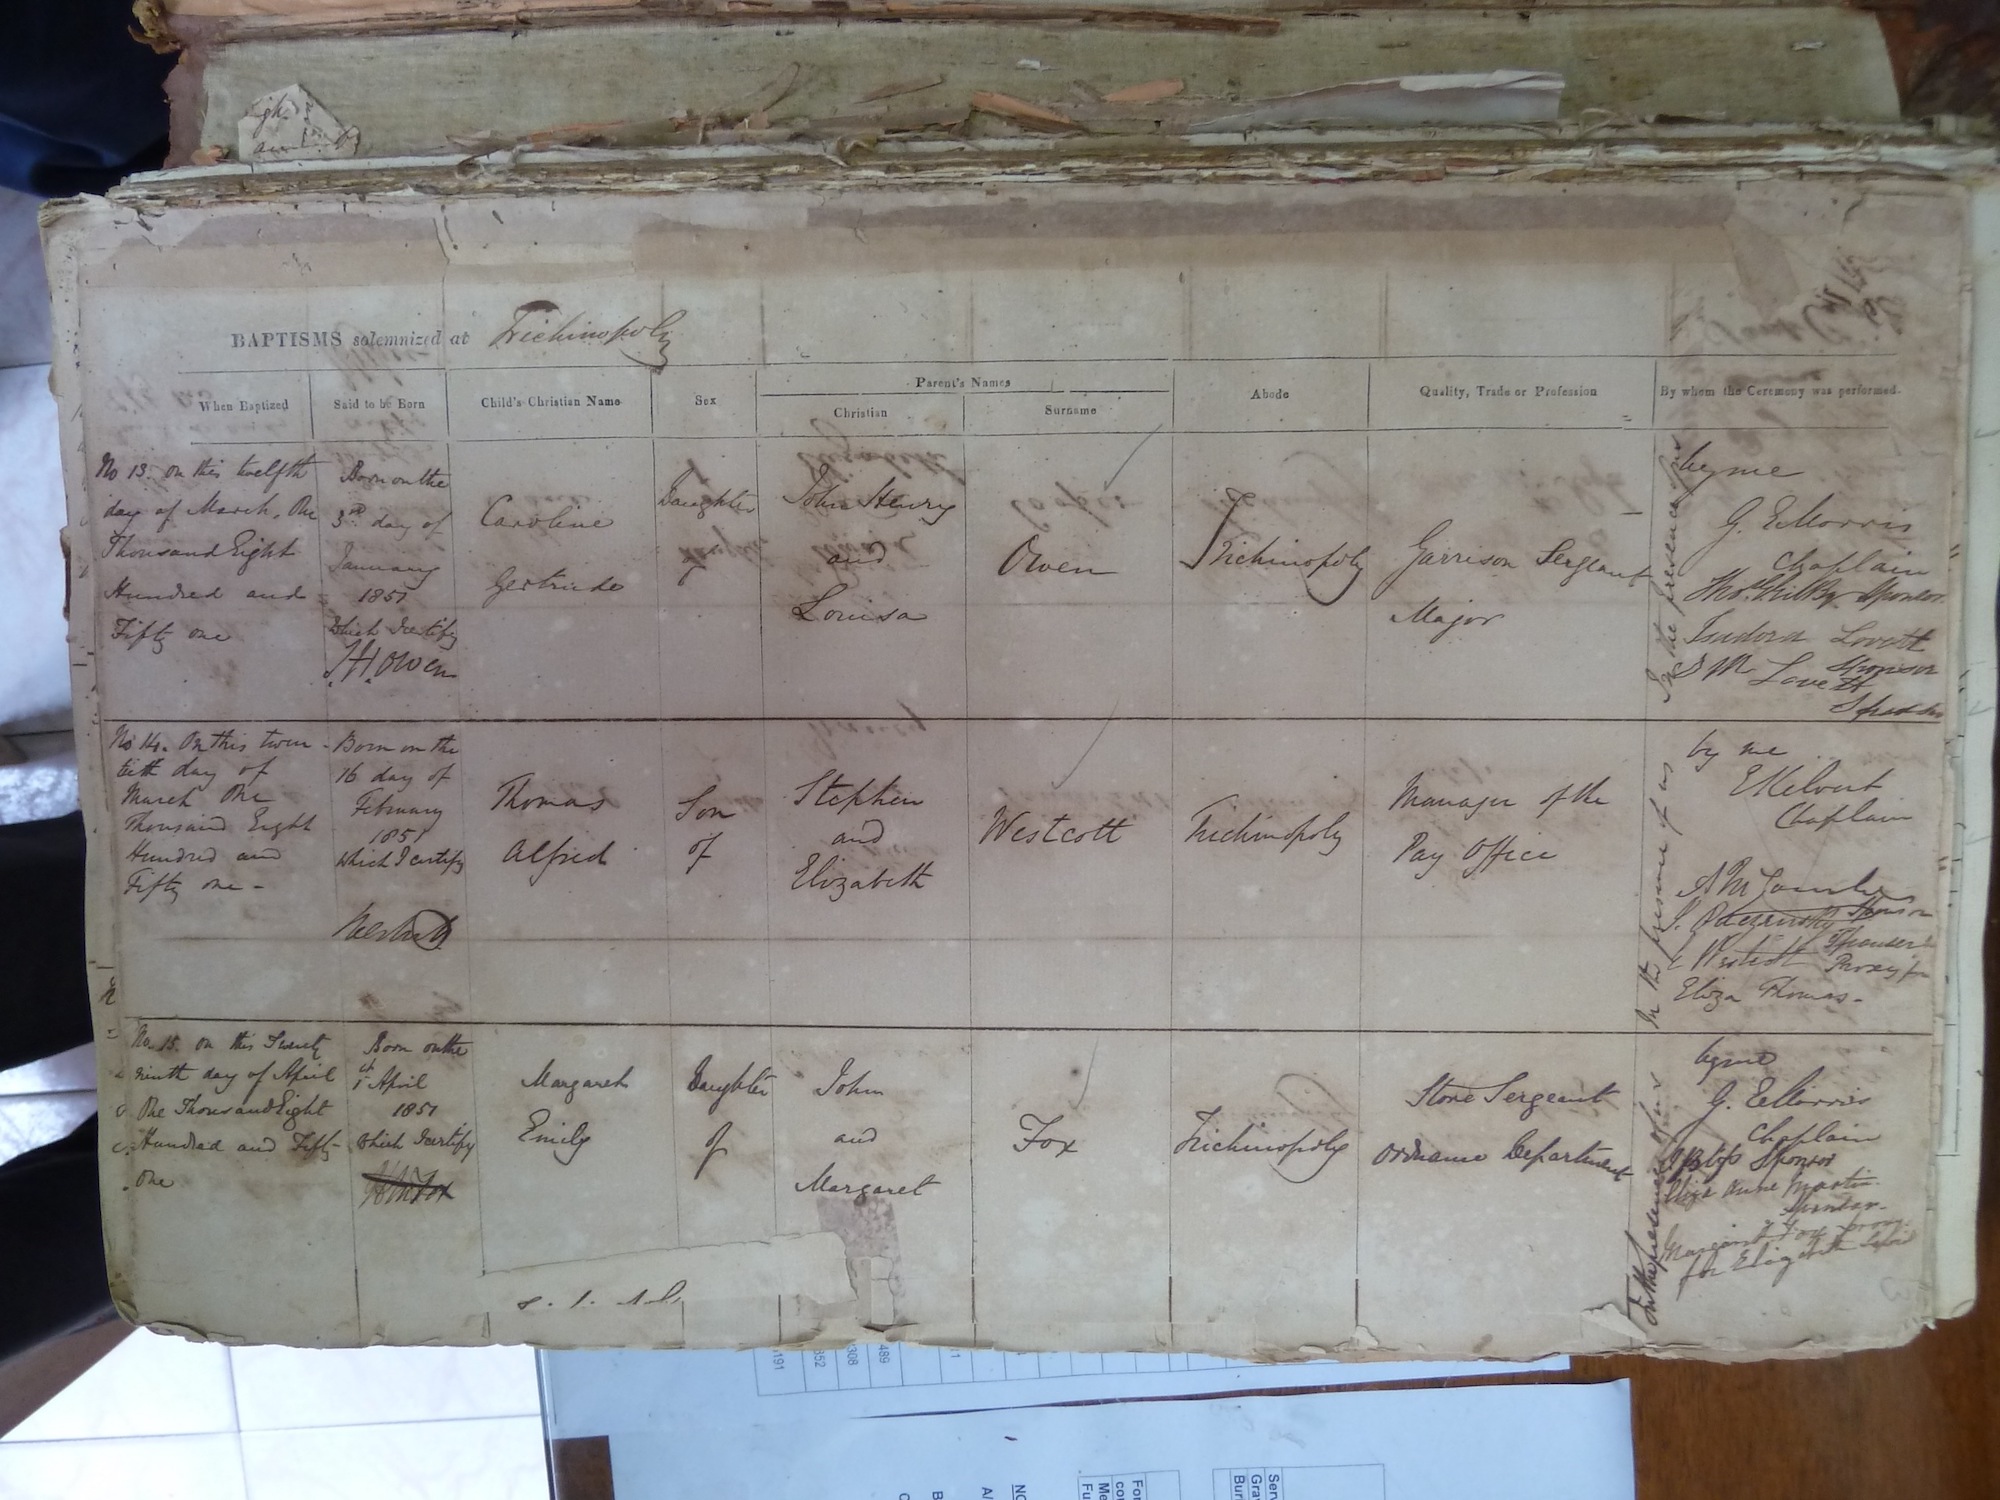 BAPTISMS solemnized at Trichinopoly
When Baptized
Said to be Born
Child's Christian Name
Sex
Parent's Names
Christian
Surname
Abode
Quality, Trade or Profession
By whom the Ceremony was performed.
No 13. on this twelfth
day of March, One
Thousand Eight
Hundred and
Fifty one
Born on the
3rd day of
January
1851
Which I certify
J. H. Owen
Caroline
Gertrude
Daughter
of
John Henry
and
Louisa
Owen
Trichinopoly
Garrison Sergeant
Major
In the presence of us
by me
G. E. Morris
Chaplain
Sponsor
Isudora Lovett
Sponsor
Lovett
No 14. On this twen-
tieth day of
March One
Thousand Eight
Hundred and
Fifty one -
Born on the
16 day of
February
1851
which I certify
Thomas
Alfred
Son
of
Stephen
and
Elizabeth
Westcott
Trichinopoly
Manager of the
Pay Office
In the presence of us
by me
Chaplain
Westcott Proxy for
Eliza Thomas -
No. 15. on this Twenty
ninth day of April
One Thousand Eight
Hundred and Fifty
One
Born on the
1st April
1851
Which I certify
Margaret
Emily
Daughter
of
John
and
Margaret
Fox
Trichinopoly
Store Sergeant
Ordnance Department
In the presence of us
by me
G. E. Morris
Chaplain
Sponsor
Eliza Anne Martin
Sponsor
Margaret Fox proxy
for Elizabeth